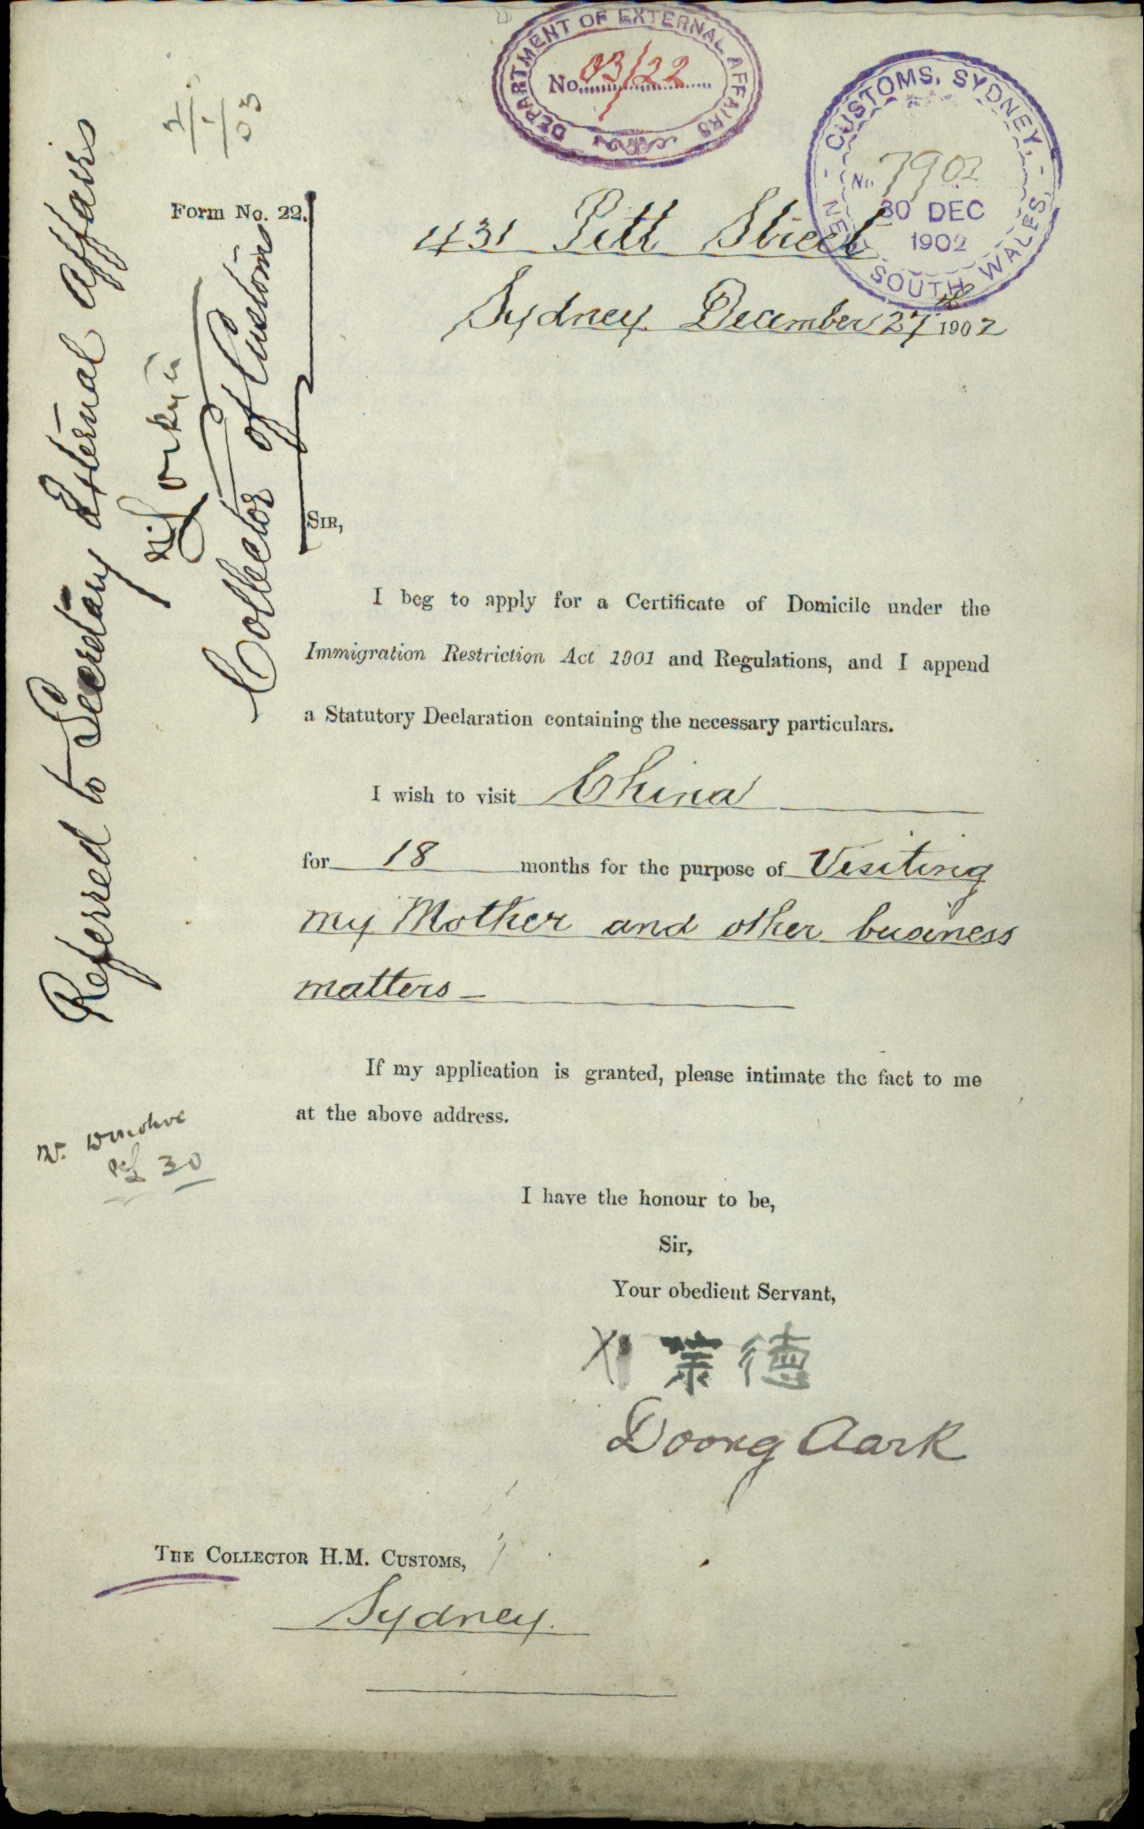 DEPARTMENT OF EXTERNAL AFFAIRS
No. 03/22
CUSTOMS, SYDNEY,
No 7902
30 DEC
1902
NEW SOUTH WALES,
2
1
03
Form No. 22.
431 Pitt Street
Sydney December 27th 1902
Referred to Secretary External Affairs
Collector of Customs
SIR,
I beg to apply for a Certificate of Domicile under the
Immigration Restriction Act 1901 and Regulations, and I append
a Statutory Declaration containing the necessary particulars.
I wish to visit China
for 18 months for the purpose of Visiting
my Mother and other business
matters —
If my application is granted, please intimate the fact to me
at the above address.
30
I have the honour to be,
Sir,
Your obedient Servant,
德
Doong Aark
THE COLLECTOR H.M. CUSTOMS,
Sydney.